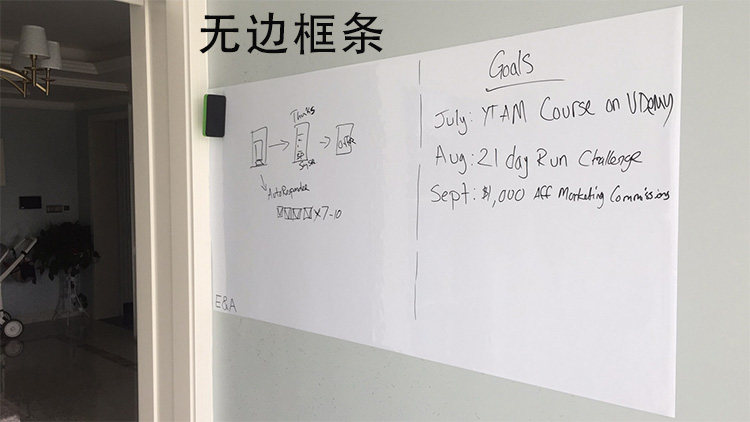 无边框条
Goals
July: YTAM Course on UDemy
Aug: 21 day Run Challenge
Sept: $1,000 Aff Marketing Commissions
Thanks
offer
AutoResponder
X 7-10
E&A